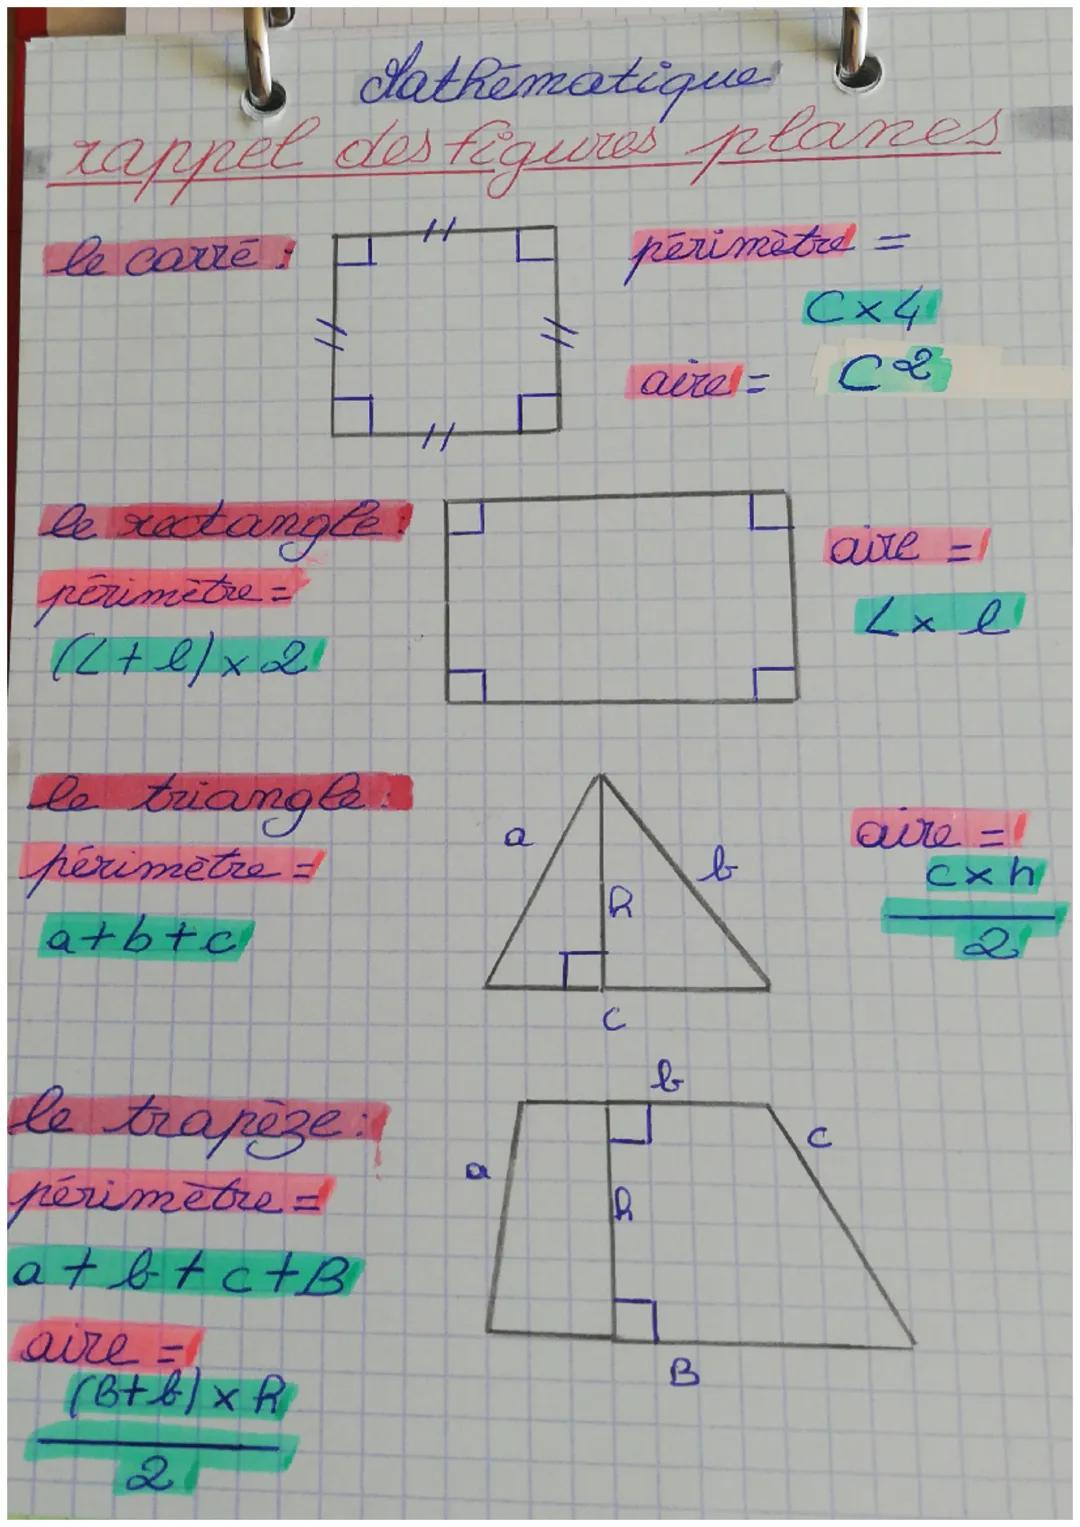 Mathématique
rappel des figures planes
le carré :
périmètre =
C x 4
aire =
C²
le rectangle :
périmètre =
(L + l) x 2
aire =
L x l
le triangle :
périmètre =
a + b + c
a
b
h
c
aire =
c x h
2
le trapèze :
périmètre =
a + b + c + B
aire =
(B + b) x h
2
b
a
c
h
B